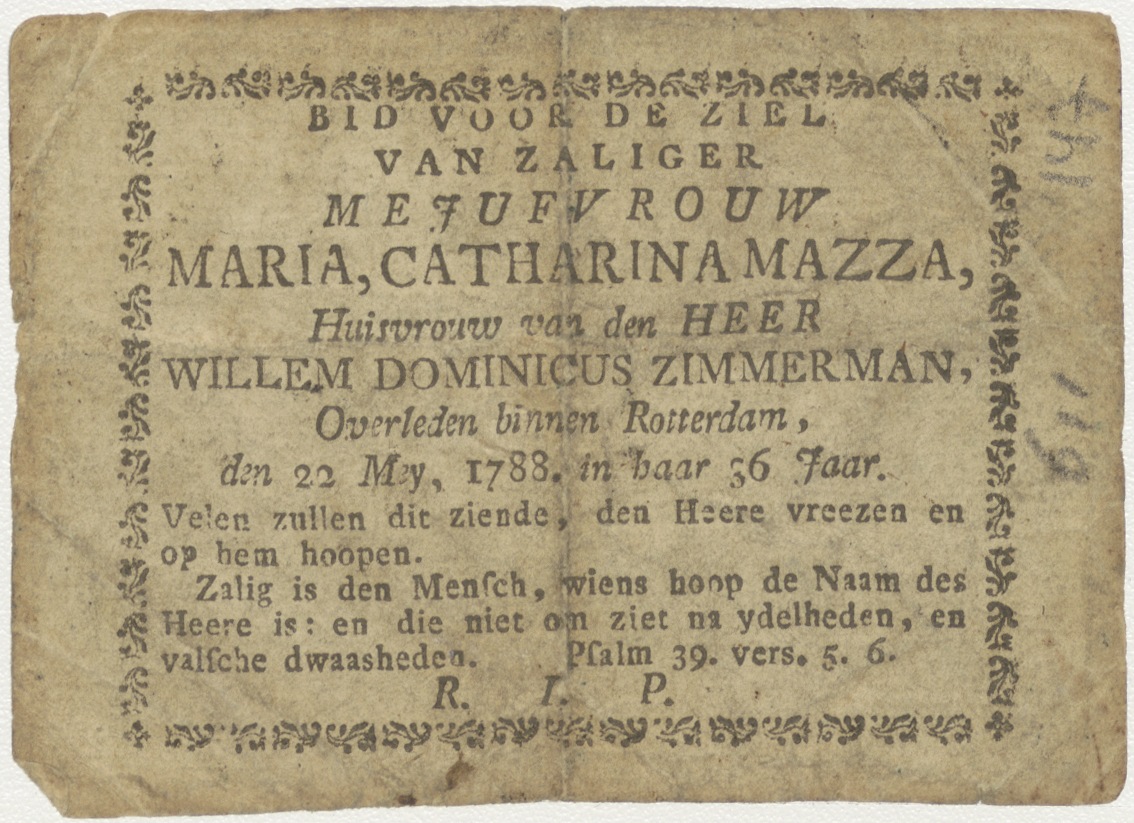 BID VOOR DE ZIEL
VAN ZALIGER
MEJUFVROUW
MARIA, CATHARINA MAZZA,
Huisvrouw van den HEER
WILLEM DOMINICUS ZIMMERMAN,
Overleden binnen Rotterdam,
den 22 Mey, 1788. in haar 36 Jaar.
Velen zullen dit ziende, den Heere vreezen en
op hem hoopen.
Zalig is den Menſch, wiens hoop de Naam des
Heere is: en die niet om ziet na ydelheden, en
valſche dwaasheden. Pſalm 39. vers. 5. 6.
R. I. P.